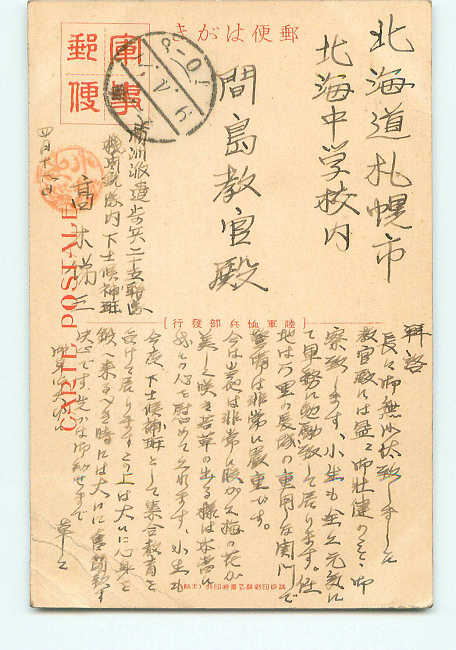 郵便はがき
軍事
郵便
北海道札幌市
北海中学校内
間島教官殿
満洲派遣歩兵二十五聯隊
機関銃隊内下士候補班
高木
四月十八日
CARTE POSTALE
陸軍恤兵部發行
拝啓
長々御無沙汰致しました
教官殿には益々御壮健のこと御
察致します、小生も至って元気に
て軍務に勉励致して居ります。任
地は万里の長城の重要な関門で
警備は非常に厳重です。
今は当地は非常に暖かく梅の花が
美しく咲き若草の出る様は本当に
我々の心を慰めてくれます、小生も
今度下士候補班として集合教育を
受けて居ります この上は大いに心身を
鍛へ来るべき時には大いに奮闘致す
決心です、先づは御知せまで
草々